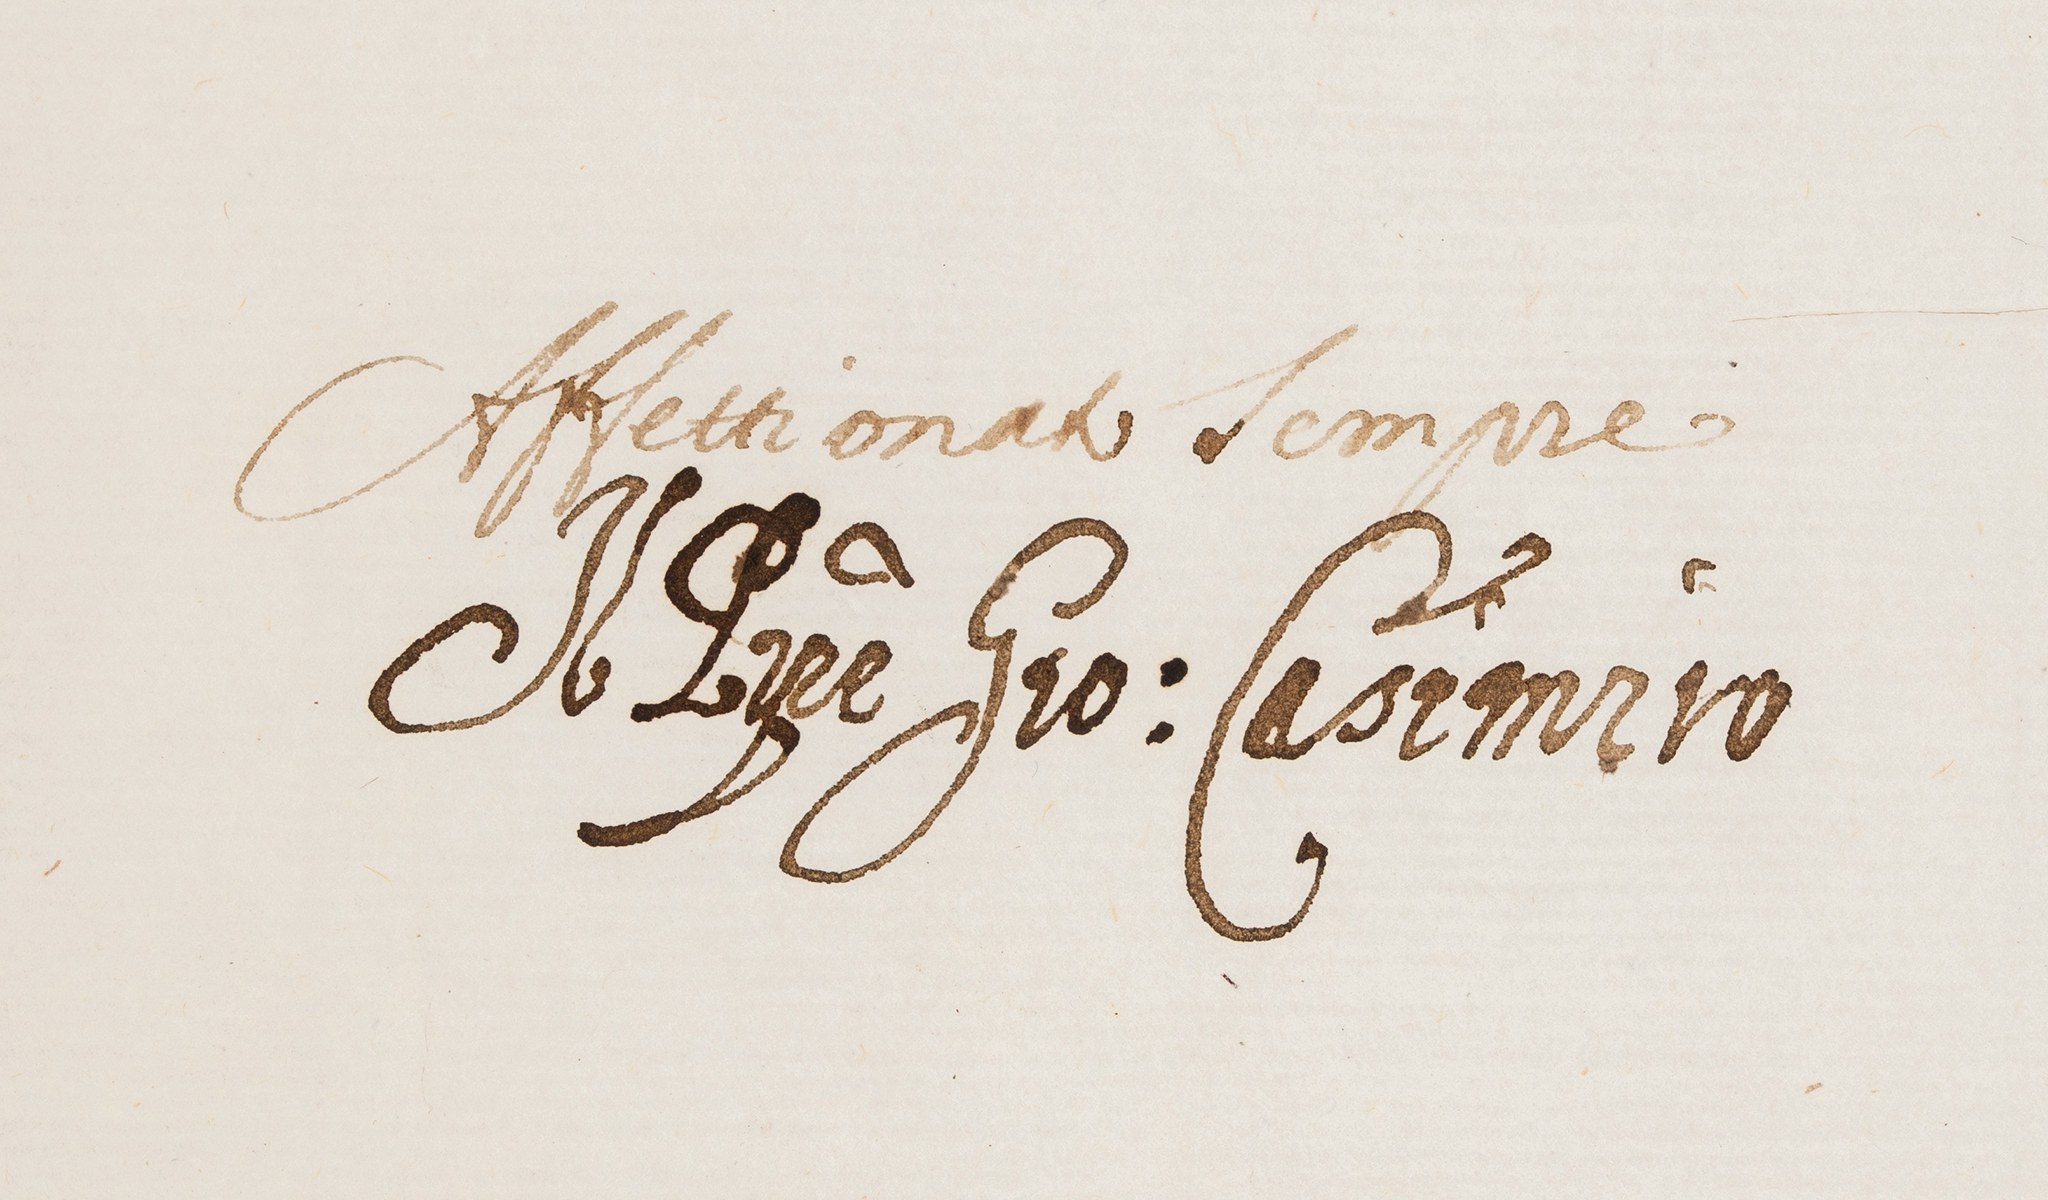 Affettionato Sempre
Il Pñpe Gio: Casimiro